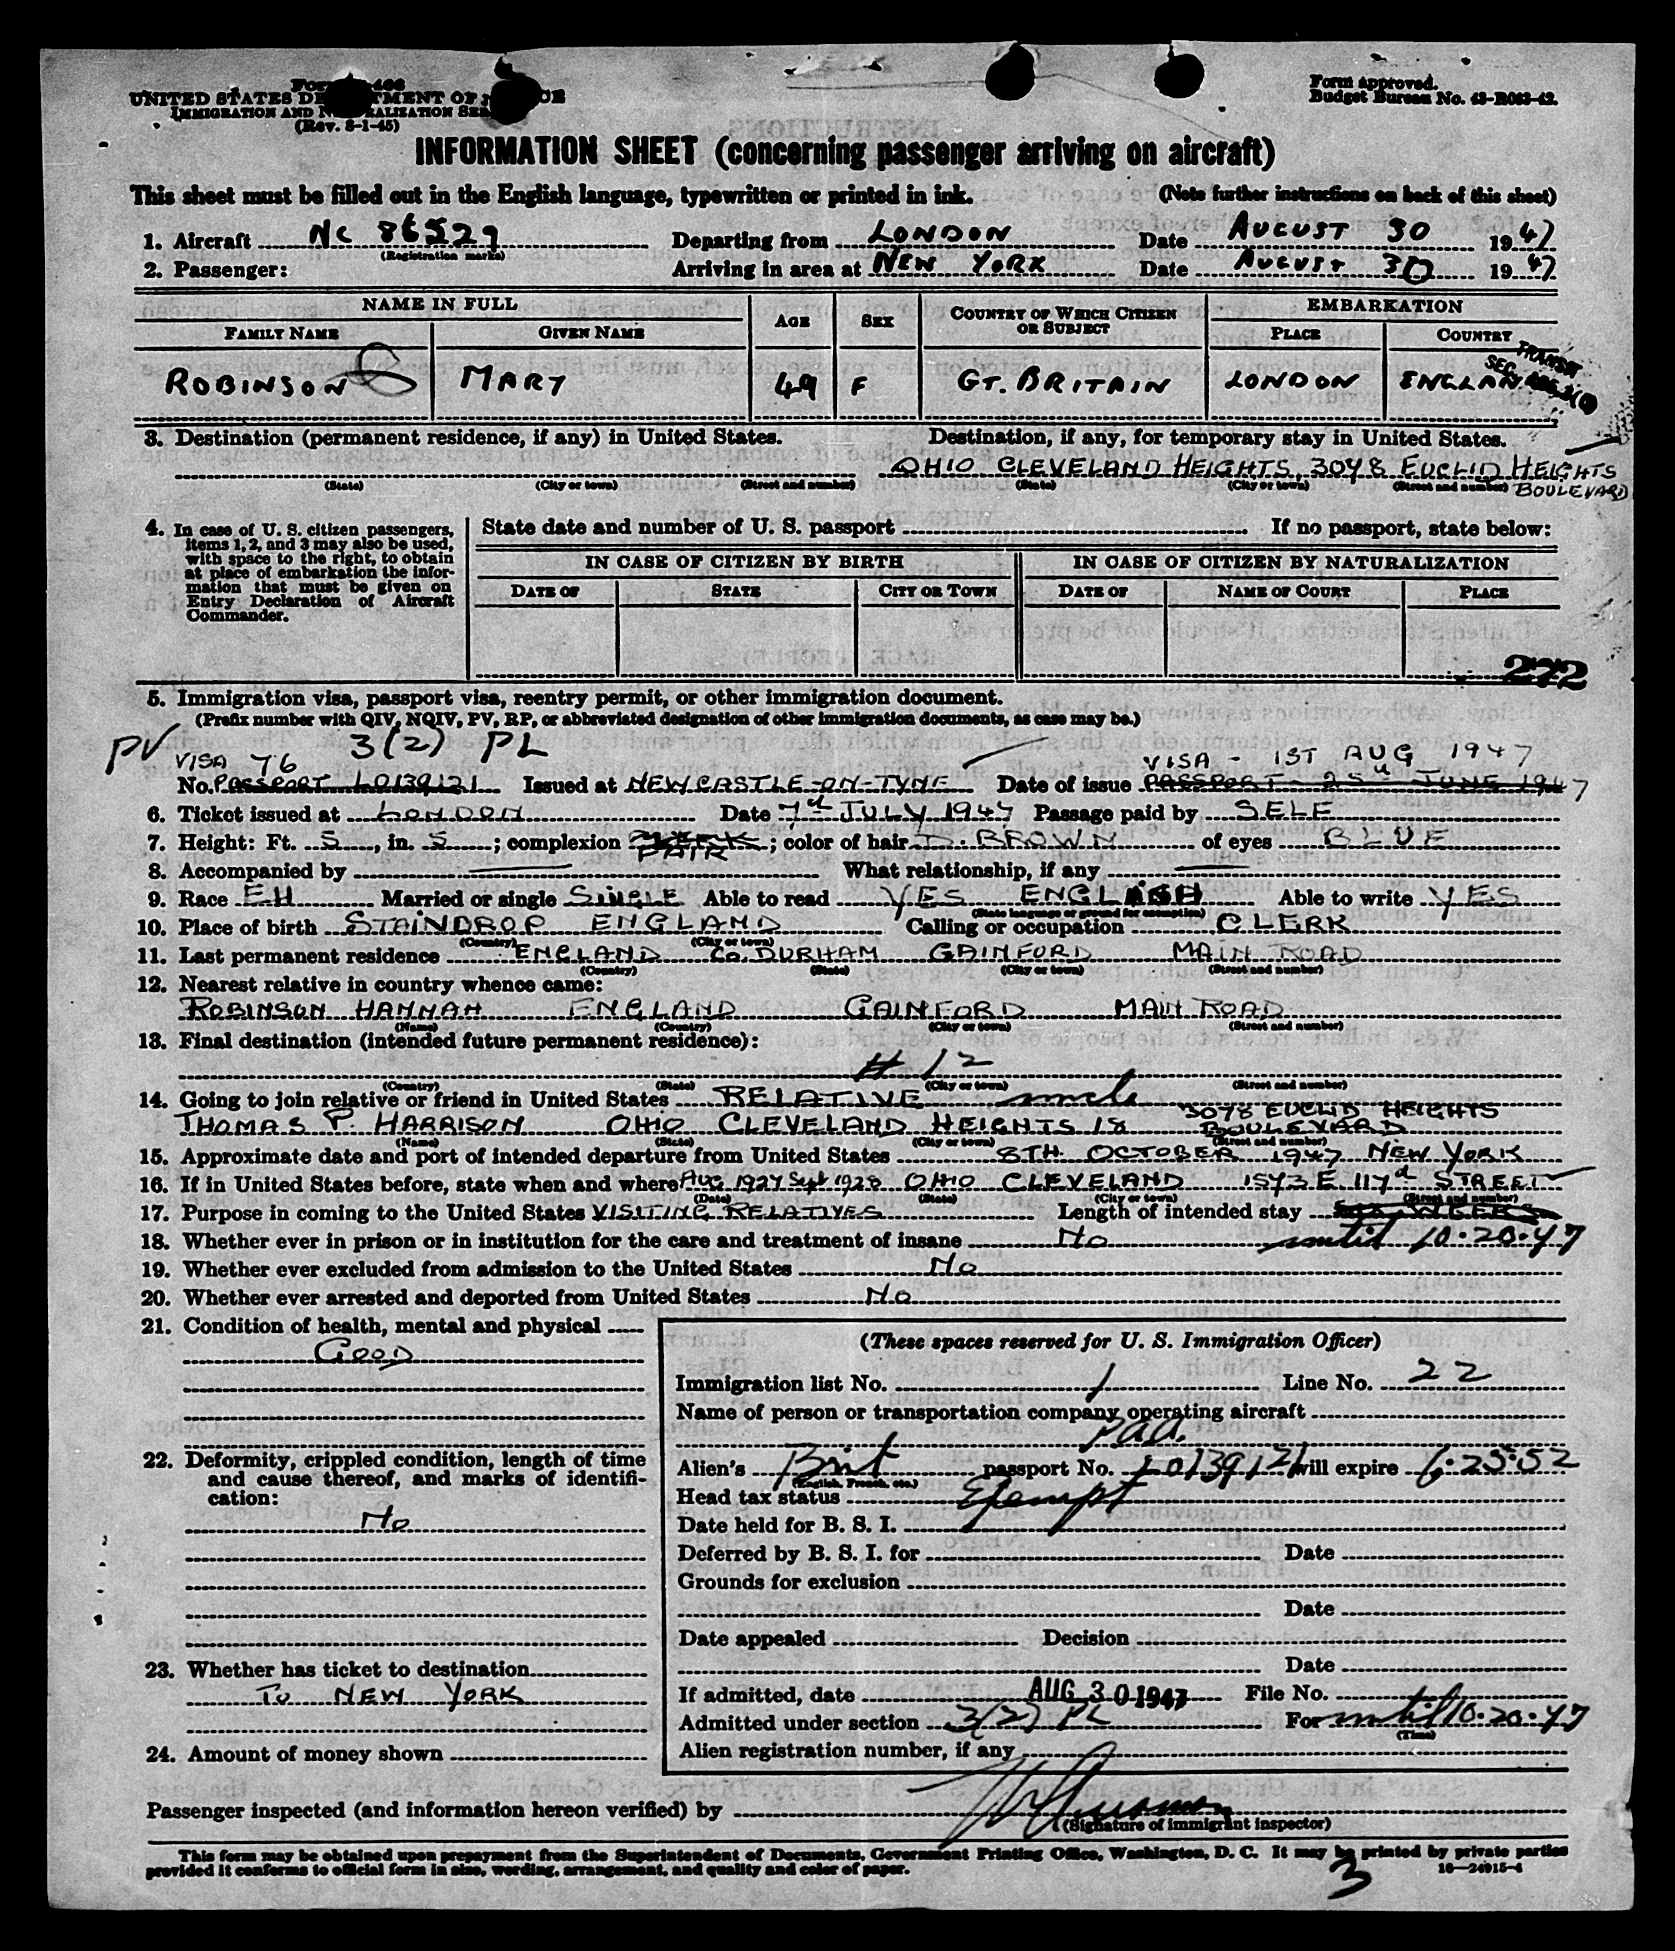 UNITED STATES DEPARTMENT OF JUSTICE
IMMIGRATION AND NATURALIZATION SERVICE
(Rev. 8-1-45)
Form approved.
Budget Bureau No. 43-R063-42.
INFORMATION SHEET (concerning passenger arriving on aircraft)
This sheet must be filled out in the English language, typewritten or printed in ink. (Note further instructions on back of this sheet)
1. Aircraft NC 86529 Departing from LONDON Date AUGUST 30 1947
(Registration marks)
2. Passenger: Arriving in area at NEW YORK Date AUGUST 30 1947
NAME IN FULL AGE SEX COUNTRY OF WHICH CITIZEN OR SUBJECT EMBARKATION
FAMILY NAME GIVEN NAME PLACE COUNTRY
TRANSIT
SEC.
ROBINSON MARY 49 F GT. BRITAIN LONDON ENGLAND
3. Destination (permanent residence, if any) in United States. Destination, if any, for temporary stay in United States.
OHIO CLEVELAND HEIGHTS, 3078 EUCLID HEIGHTS
(State) (City or town) (Street and number) (State) (City or town) (Street and number) BOULEVARD
4. In case of U. S. citizen passengers, items 1, 2, and 3 may also be used, with space to the right, to obtain at place of embarkation the information that must be given on Entry Declaration of Aircraft Commander.
State date and number of U. S. passport If no passport, state below:
IN CASE OF CITIZEN BY BIRTH IN CASE OF CITIZEN BY NATURALIZATION
DATE OF STATE CITY OR TOWN DATE OF NAME OF COURT PLACE
272
5. Immigration visa, passport visa, reentry permit, or other immigration document.
(Prefix number with QIV, NQIV, PV, RP, or abbreviated designation of other immigration documents, as case may be.)
PV 3(2) PL
VISA 76 VISA - 1ST AUG 1947
No. PASSPORT L0139121 Issued at NEWCASTLE-ON-TYNE Date of issue PASSPORT - 25th JUNE 1947
6. Ticket issued at LONDON Date 7th JULY 1947 Passage paid by SELF
7. Height: Ft. 5, in. 5; complexion FAIR; color of hair D. BROWN of eyes BLUE
8. Accompanied by — What relationship, if any —
9. Race EH Married or single SINGLE Able to read YES ENGLISH Able to write YES
(State language or ground for exemption)
10. Place of birth STAINDROP ENGLAND Calling or occupation CLERK
(Country) (City or town)
11. Last permanent residence ENGLAND Co. DURHAM GAINFORD MAIN ROAD
(Country) (State) (City or town) (Street and number)
12. Nearest relative in country whence came:
ROBINSON HANNAH ENGLAND GAINFORD MAIN ROAD
(Name) (Country) (City or town) (Street and number)
13. Final destination (intended future permanent residence):
# 12
(Country) (State) (City or town) (Street and number)
14. Going to join relative or friend in United States RELATIVE uncle
THOMAS P. HARRISON OHIO CLEVELAND HEIGHTS 18 3078 EUCLID HEIGHTS BOULEVARD
(Name) (State) (City or town) (Street and number)
15. Approximate date and port of intended departure from United States 8TH OCTOBER 1947 NEW YORK
16. If in United States before, state when and where AUG 1927 Sept 1928 OHIO CLEVELAND 1573 E. 117th STREET
(Date) (State) (City or town) (Street and number)
17. Purpose in coming to the United States VISITING RELATIVES Length of intended stay
18. Whether ever in prison or in institution for the care and treatment of insane No until 10.20.47
19. Whether ever excluded from admission to the United States No
20. Whether ever arrested and deported from United States No
21. Condition of health, mental and physical
GOOD
22. Deformity, crippled condition, length of time and cause thereof, and marks of identification:
No
23. Whether has ticket to destination
To NEW YORK
24. Amount of money shown
(These spaces reserved for U. S. Immigration Officer)
Immigration list No. 1 Line No. 22
Name of person or transportation company operating aircraft
Paa.
Alien's Brit passport No. L0139121 will expire 6.25.52
(English, French, etc.)
Head tax status Exempt
Date held for B. S. I.
Deferred by B. S. I. for Date
Grounds for exclusion
Date
Date appealed Decision
Date
If admitted, date AUG 30 1947 File No.
Admitted under section 3(2) PL For until 10.20.47
(Time)
Alien registration number, if any
Passenger inspected (and information hereon verified) by
(Signature of immigrant inspector)
This form may be obtained upon prepayment from the Superintendent of Documents, Government Printing Office, Washington, D. C. It may be printed by private parties
provided it conforms to official form in size, wording, arrangement, and quality and color of paper. 16—24915-4
3